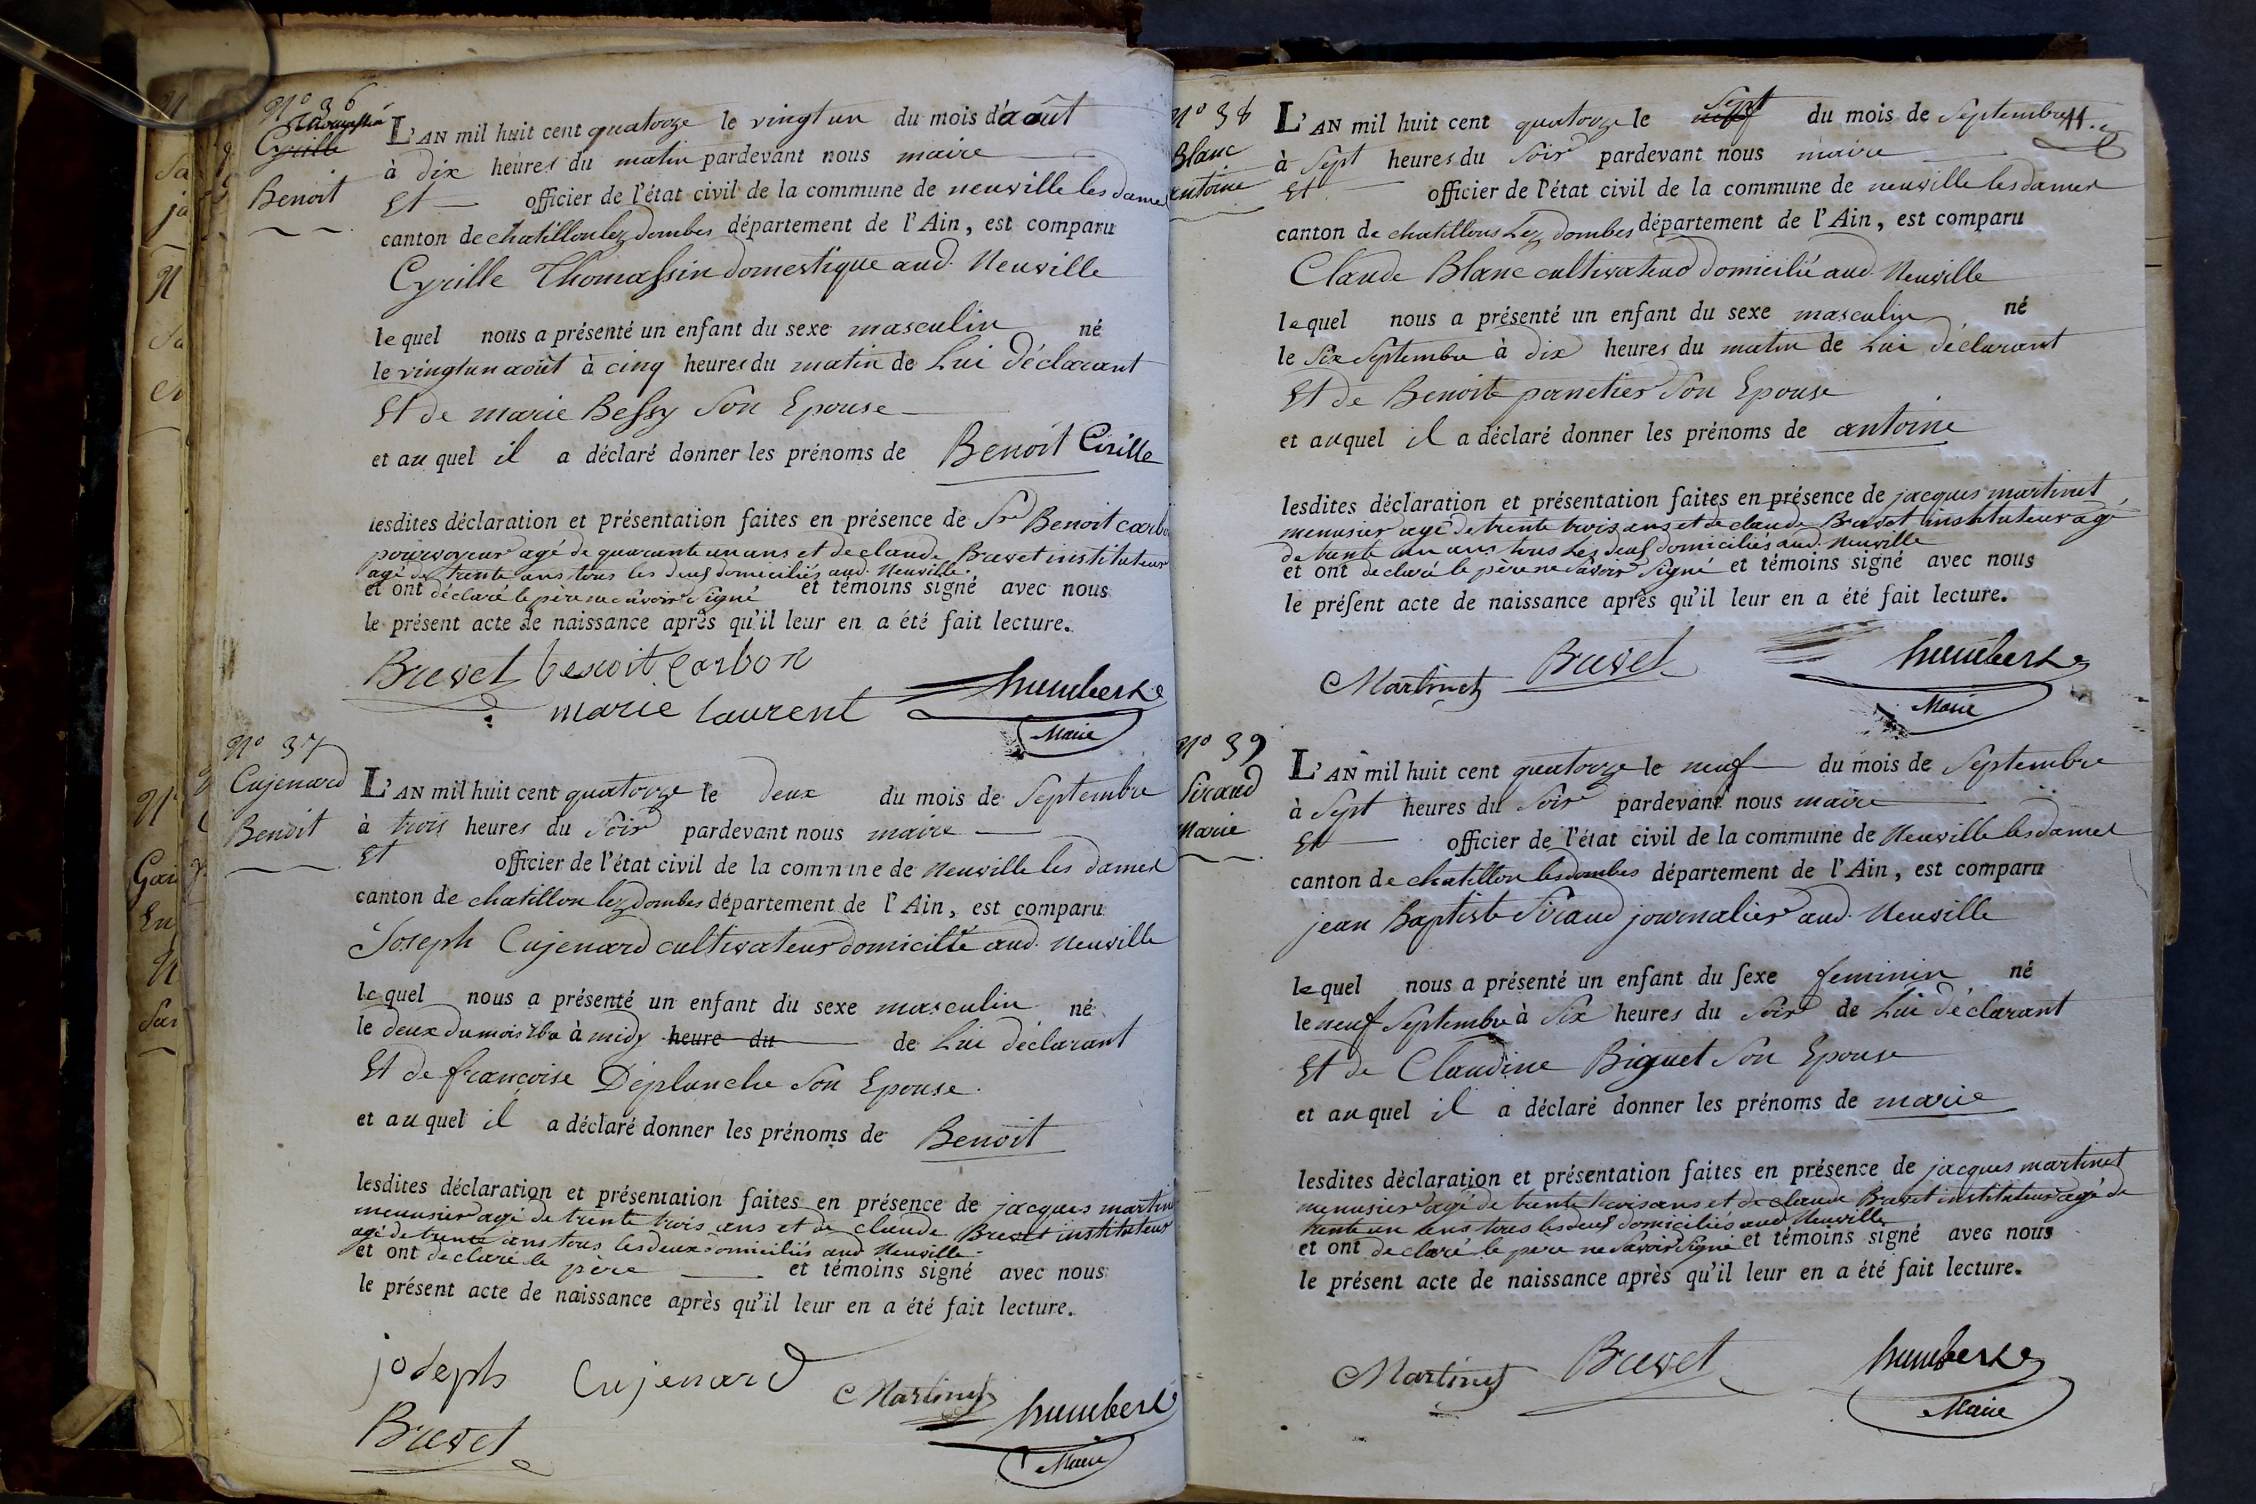 N° 36
Thomassin
Cyrille
Benoit
L'AN mil huit cent quatorze le vingt un du mois d'août
à dix heures du matin pardevant nous maire
Et officier de l'état civil de la commune de neuville les dames
canton de chatillon lez dombes département de l'Ain, est comparu
Cyrille Thomassin domestique aud. Neuville
lequel nous a présenté un enfant du sexe masculin né
le vingt un août à cinq heures du matin de Lui déclarant
Et de marie Bessy Son Epouse
et au quel il a déclaré donner les prénoms de Benoit Cirille
lesdites déclaration et présentation faites en présence de Sr Benoit carbo
pourvoyeur agé de quarante un ans et de claude Brevet instituteur
agé de trente ans tous les deux domiciliés aud. Neuville.
et ont déclaré le père ne savoir signé et témoins signé avec nous
le présent acte de naissance après qu'il leur en a été fait lecture.
Brevet benoit Carbon
marie laurent humbert
Maire
N° 37
Cujenard
Benoit
L'AN mil huit cent quatorze le deux du mois de Septembre
à trois heures du Soir pardevant nous maire
Et officier de l'état civil de la commune de Neuville les dames
canton de chatillon lez dombes département de l'Ain, est comparu
Joseph Cujenard cultivateur domicilié aud. neuville
lequel nous a présenté un enfant du sexe masculin né
le deux du mois 7bre à midy heure du de Lui déclarant
Et de francoise Déplanche Son Epouse.
et au quel il a déclaré donner les prénoms de Benoit
lesdites déclaration et présentation faites en présence de jacques martin
menusier agé de trente trois ans et de claude Brevet instituteur
agé de trente ans tous les deux domiciliés aud Neuville.
et ont declaré le père et témoins signé avec nous
le présent acte de naissance après qu'il leur en a été fait lecture.
joseph Cujenard
Martinet humbert
Brevet Maire
N° 38
Blanc
antoine
L'AN mil huit cent quatorze le neuf Sept du mois de Septembre
à Sept heures du Soir pardevant nous maire
Et officier de l'état civil de la commune de neuville les dames
canton de chatillons Lez dombes département de l'Ain, est comparu
Claude Blanc cultivateur domicilié aud Neuville
lequel nous a présenté un enfant du sexe masculin né
le Six Septembre à dix heures du matin de Lui déclarant
Et de Benoite panetier Son Epouse
et auquel il a déclaré donner les prénoms de antoine
lesdites déclaration et présentation faites en présence de jacques martinet
menusier agé de trente trois ans et de claude Brevet instituteur agé
de trente un ans tous Les deux domiciliés aud. Neuville
et ont declaré le père ne Savoir Signé et témoins signé avec nous
le préſent acte de naissance après qu'il leur en a été fait lecture.
Martinet Brevet humbert
Maire
N° 39
Siraud
Marie
L'AN mil huit cent quatorze le neuf du mois de Septembre
à Sept heures du Soir pardevant nous maire
Et officier de l'état civil de la commune de Neuville les dames
canton de chatillon les dombes département de l'Ain, est comparu
jean Baptiste Siraud journalier aud. Neuville
lequel nous a présenté un enfant du ſexe feminin né
le neuf Septembre à Six heures du Soir de Lui déclarant
Et de Claudine Biguet Son Epouse
et au quel il a déclaré donner les prénoms de marie
lesdites déclaration et présentation faites en présence de jacques martinet
menusier agé de trente trois ans et de claude Brevet instituteur agé de
trente un ans tous les deux domiciliés aud Neuville
et ont declaré le pere ne Savoir Signé et témoins signé avec nous
le présent acte de naissance après qu'il leur en a été fait lecture.
Martinet Brevet humbert
Maire